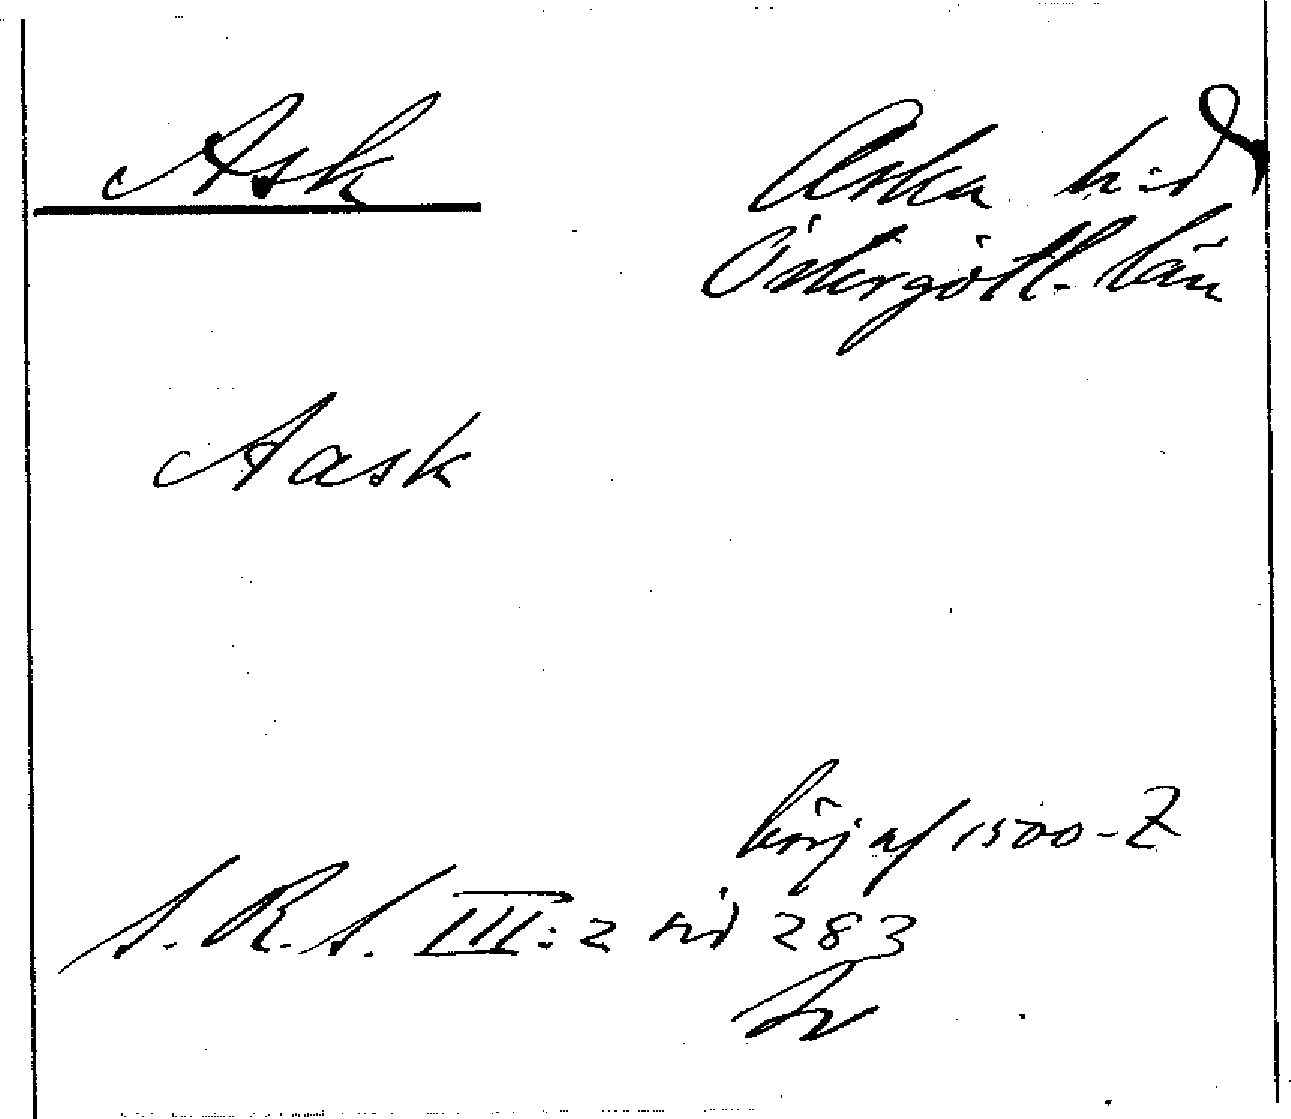 Ask
Aska h:d
Östergötl. län
Aask
börj af 1500-t
S. R. S. III:2 sid 283